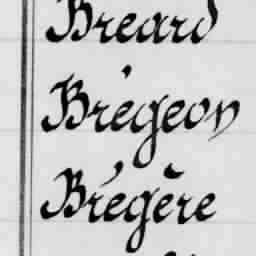 Breard
Brégeon
Brégère